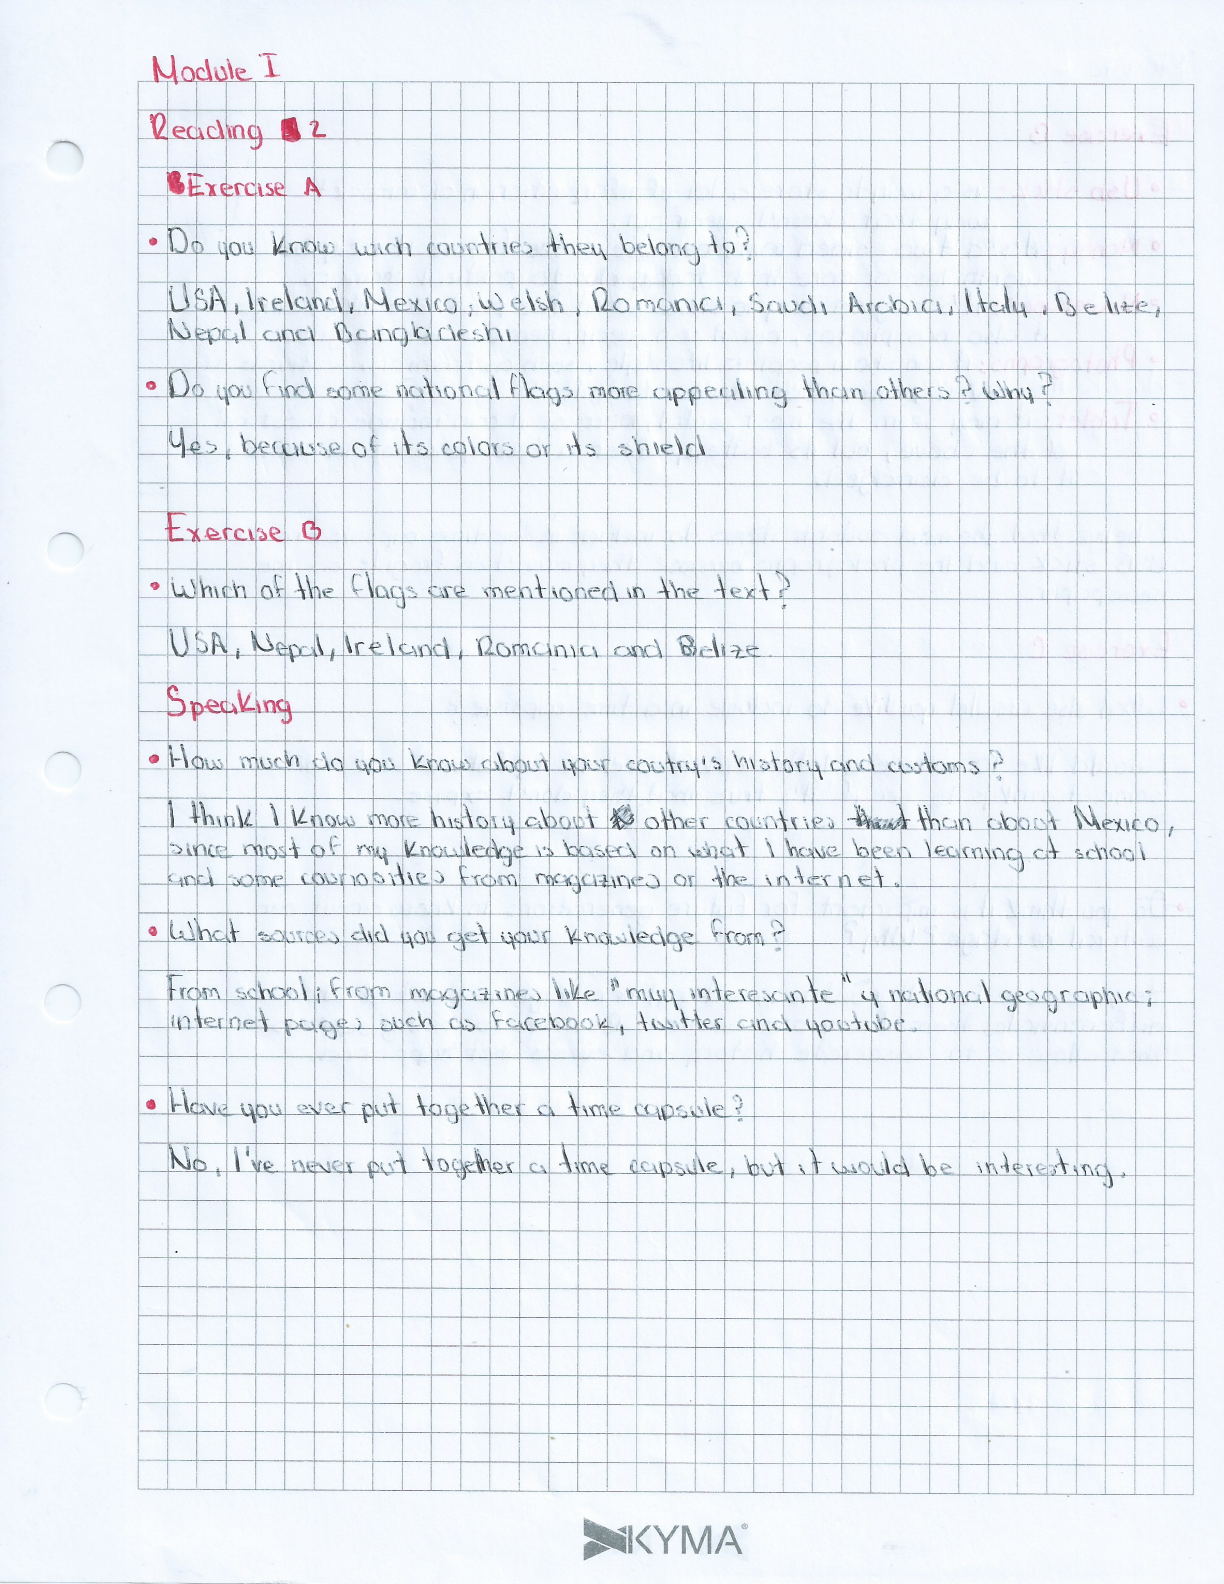 Module I
Reading 2
Exercise A
• Do you know wich countries they belong to?
USA, Ireland, Mexico, Welsh, Romania, Saudi Arabia, Italy, Belize,
Nepal and Bangladeshi
• Do you find some national flags more appealing than others? Why?
Yes, because of its colors or its shield
Exercise B
• Which of the flags are mentioned in the text?
USA, Nepal, Ireland, Romania and Belize.
Speaking
• How much do you know about your coutry's history and customs?
I think I know more history about other countries than about Mexico,
since most of my knowledge is based on what I have been learning at school
and some couriosities from magazines or the internet.
• What sources did you get your knowledge from?
From school; from magazines like "muy interesante" y national geographic;
internet pages such as facebook, twitter and youtube.
• Have you ever put together a time capsule?
No, I've never put together a time capsule, but it would be interesting.
KYMA®